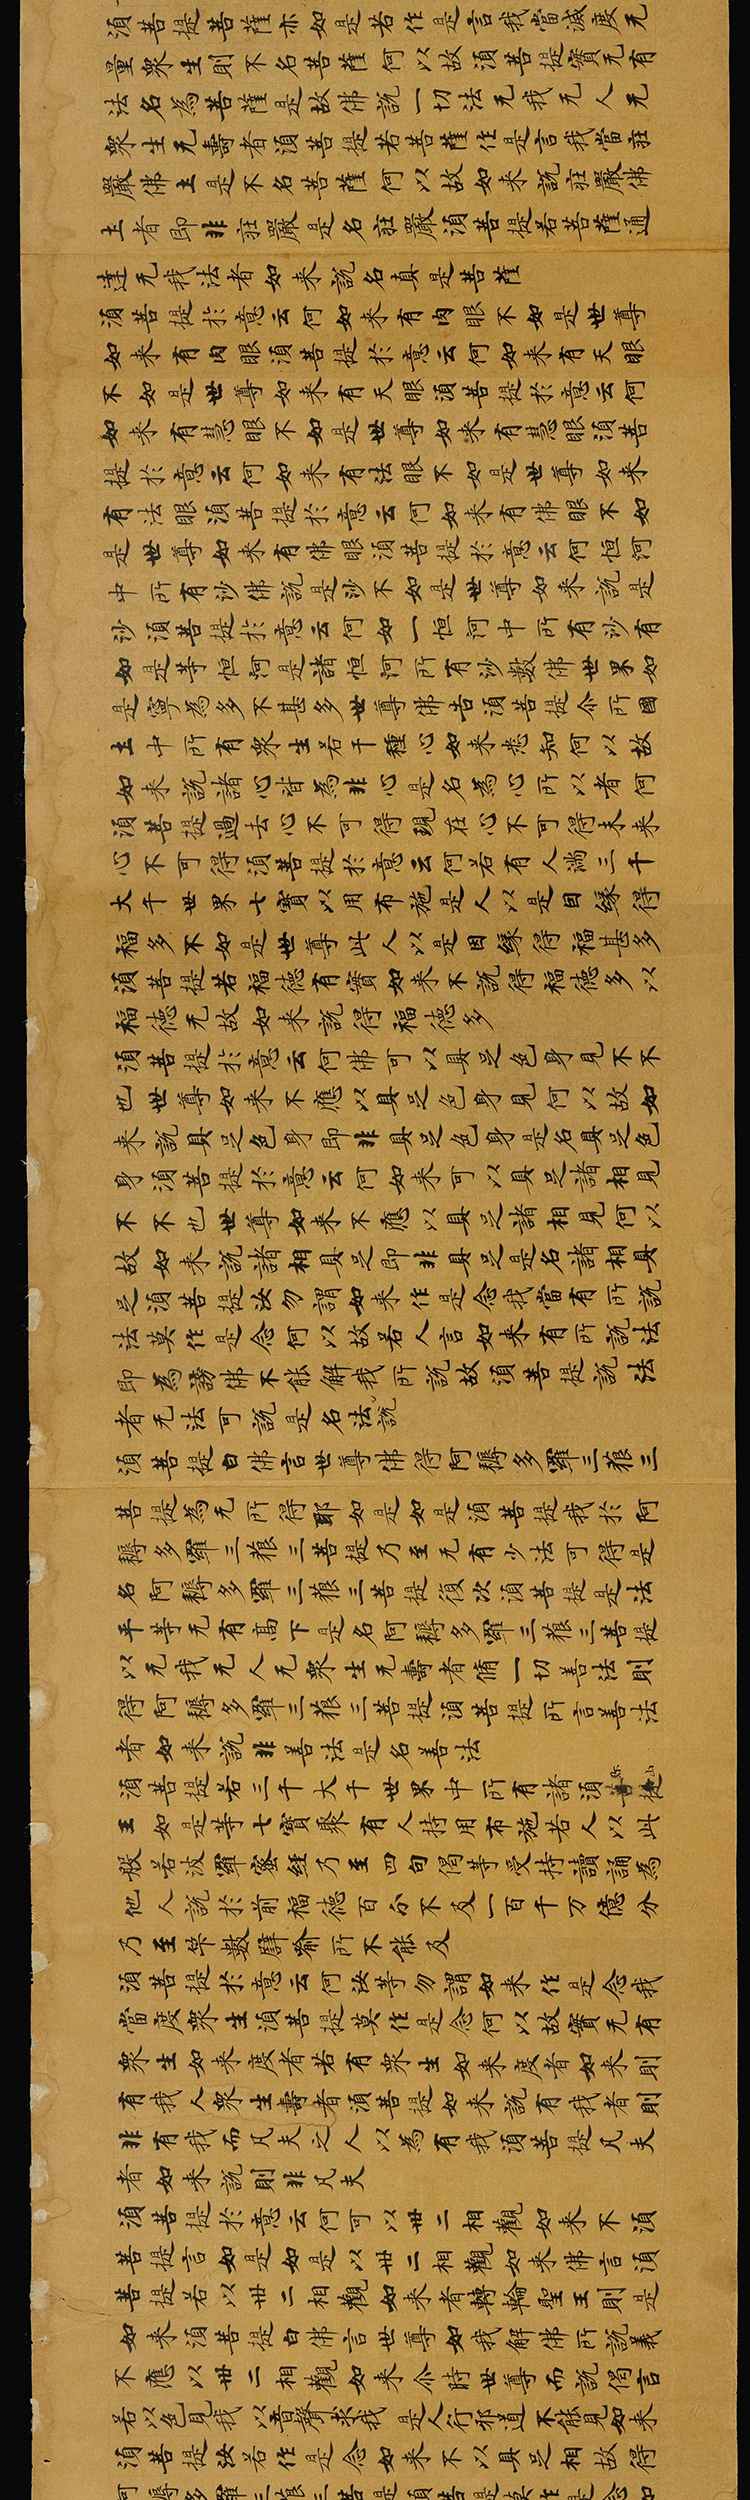 須菩提菩薩亦如是若作是言我當滅度无
量衆生則不名菩薩何以故須菩提實无有
法名為菩薩是故佛說一切法无我无人无
衆生无壽者須菩提若菩薩作是言我當莊
嚴佛土是不名菩薩何以故如来說莊嚴佛
土者即非莊嚴是名莊嚴須菩提若菩薩通
達无我法者如来說名真是菩薩
須菩提於意云何如来有肉眼不如是世尊
如来有肉眼須菩提於意云何如来有天眼
不如是世尊如来有天眼須菩提於意云何
如来有慧眼不如是世尊如来有慧眼須菩
提於意云何如来有法眼不如是世尊如来
有法眼須菩提於意云何如来有佛眼不如
是世尊如来有佛眼須菩提於意云何恒河
中所有沙佛說是沙不如是世尊如来說是
沙須菩提於意云何如一恒河中所有沙有
如是等恒河是諸恒河所有沙數佛世界如
是寧為多不甚多世尊佛告須菩提尒所國
土中所有衆生若干種心如来悉知何以故
如来說諸心皆為非心是名為心所以者何
須菩提過去心不可得現在心不可得未来
心不可得須菩提於意云何若有人滿三千
大千世界七寶以用布施是人以是因緣得
福多不如是世尊此人以是因緣得福甚多
須菩提若福德有實如来不說得福德多以
福德无故如来說得福德多
須菩提於意云何佛可以具足色身見不不
也世尊如来不應以具足色身見何以故如
来說具足色身即非具足色身是名具足色
身須菩提於意云何如来可以具足諸相見
不不也世尊如来不應以具足諸相見何以
故如来說諸相具足即非具足是名諸相具
足須菩提汝勿謂如来作是念我當有所說
法莫作是念何以故若人言如来有所說法
即為謗佛不能解我所說故須菩提說法
者无法可說是名法說
須菩提白佛言世尊佛得阿耨多羅三藐三
菩提為无所得耶如是如是須菩提我於阿
耨多羅三藐三菩提乃至无有少法可得是
名阿耨多羅三藐三菩提復次須菩提是法
平等无有高下是名阿耨多羅三藐三菩提
以无我无人无衆生无壽者脩一切善法則
得阿耨多羅三藐三菩提須菩提所言善法
者如来說非善法是名善法
須菩提若三千大千世界中所有諸須弥山
王如是等七寶聚有人持用布施若人以此
般若波羅蜜經乃至四句偈等受持讀誦為
他人說於前福德百分不及一百千万億分
乃至筭數譬喻所不能及
須菩提於意云何汝等勿謂如来作是念我
當度衆生須菩提莫作是念何以故實无有
衆生如来度者若有衆生如来度者如来則
有我人衆生壽者須菩提如来說有我者則
非有我而凡夫之人以為有我須菩提凡夫
者如来說則非凡夫
須菩提於意云何可以卅二相觀如来不須
菩提言如是如是以卅二相觀如来佛言須
菩提若以卅二相觀如来者轉輪聖王則是
如来須菩提白佛言世尊如我解佛所說義
不應以卅二相觀如来尒時世尊而說偈言
若以色見我以音聲求我是人行邪道不能見如来
須菩提汝若作是念如来不以具足相故得
阿耨多羅三藐三菩提須菩提莫作是念如